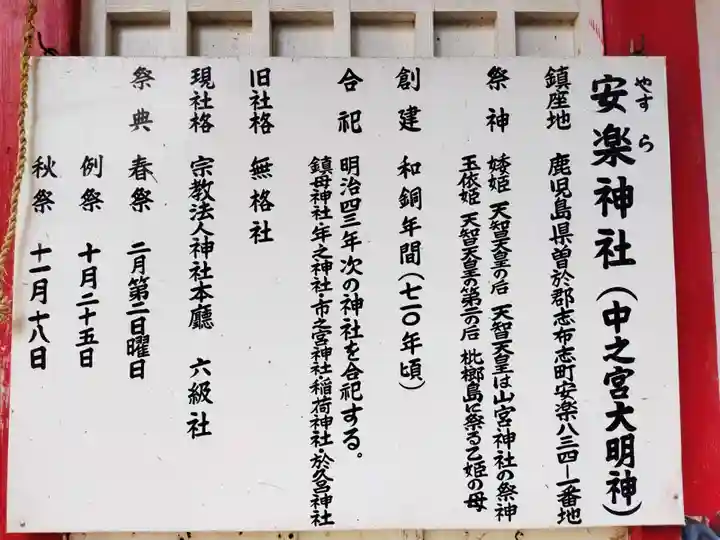 安楽神社(中之宮大明神)
やすら
鎮座地 鹿児島県曽於郡志布志町安楽八三四ー一番地
祭神 倭姫 天智天皇の后 天智天皇は山宮神社の祭神
玉依姫 天智天皇の第二の后 枇榔島に祭る乙姫の母
創建 和銅年間(七一〇年頃)
合祀 明治四三年次の神社を合祀する。
鎮母神社・年之神社・市之宮神社・稲荷神社・於久呂神社
旧社格 無格社
現社格 宗教法人神社本廳 六級社
祭典 春祭 二月第二日曜日
例祭 十月二十五日
秋祭 十一月十八日